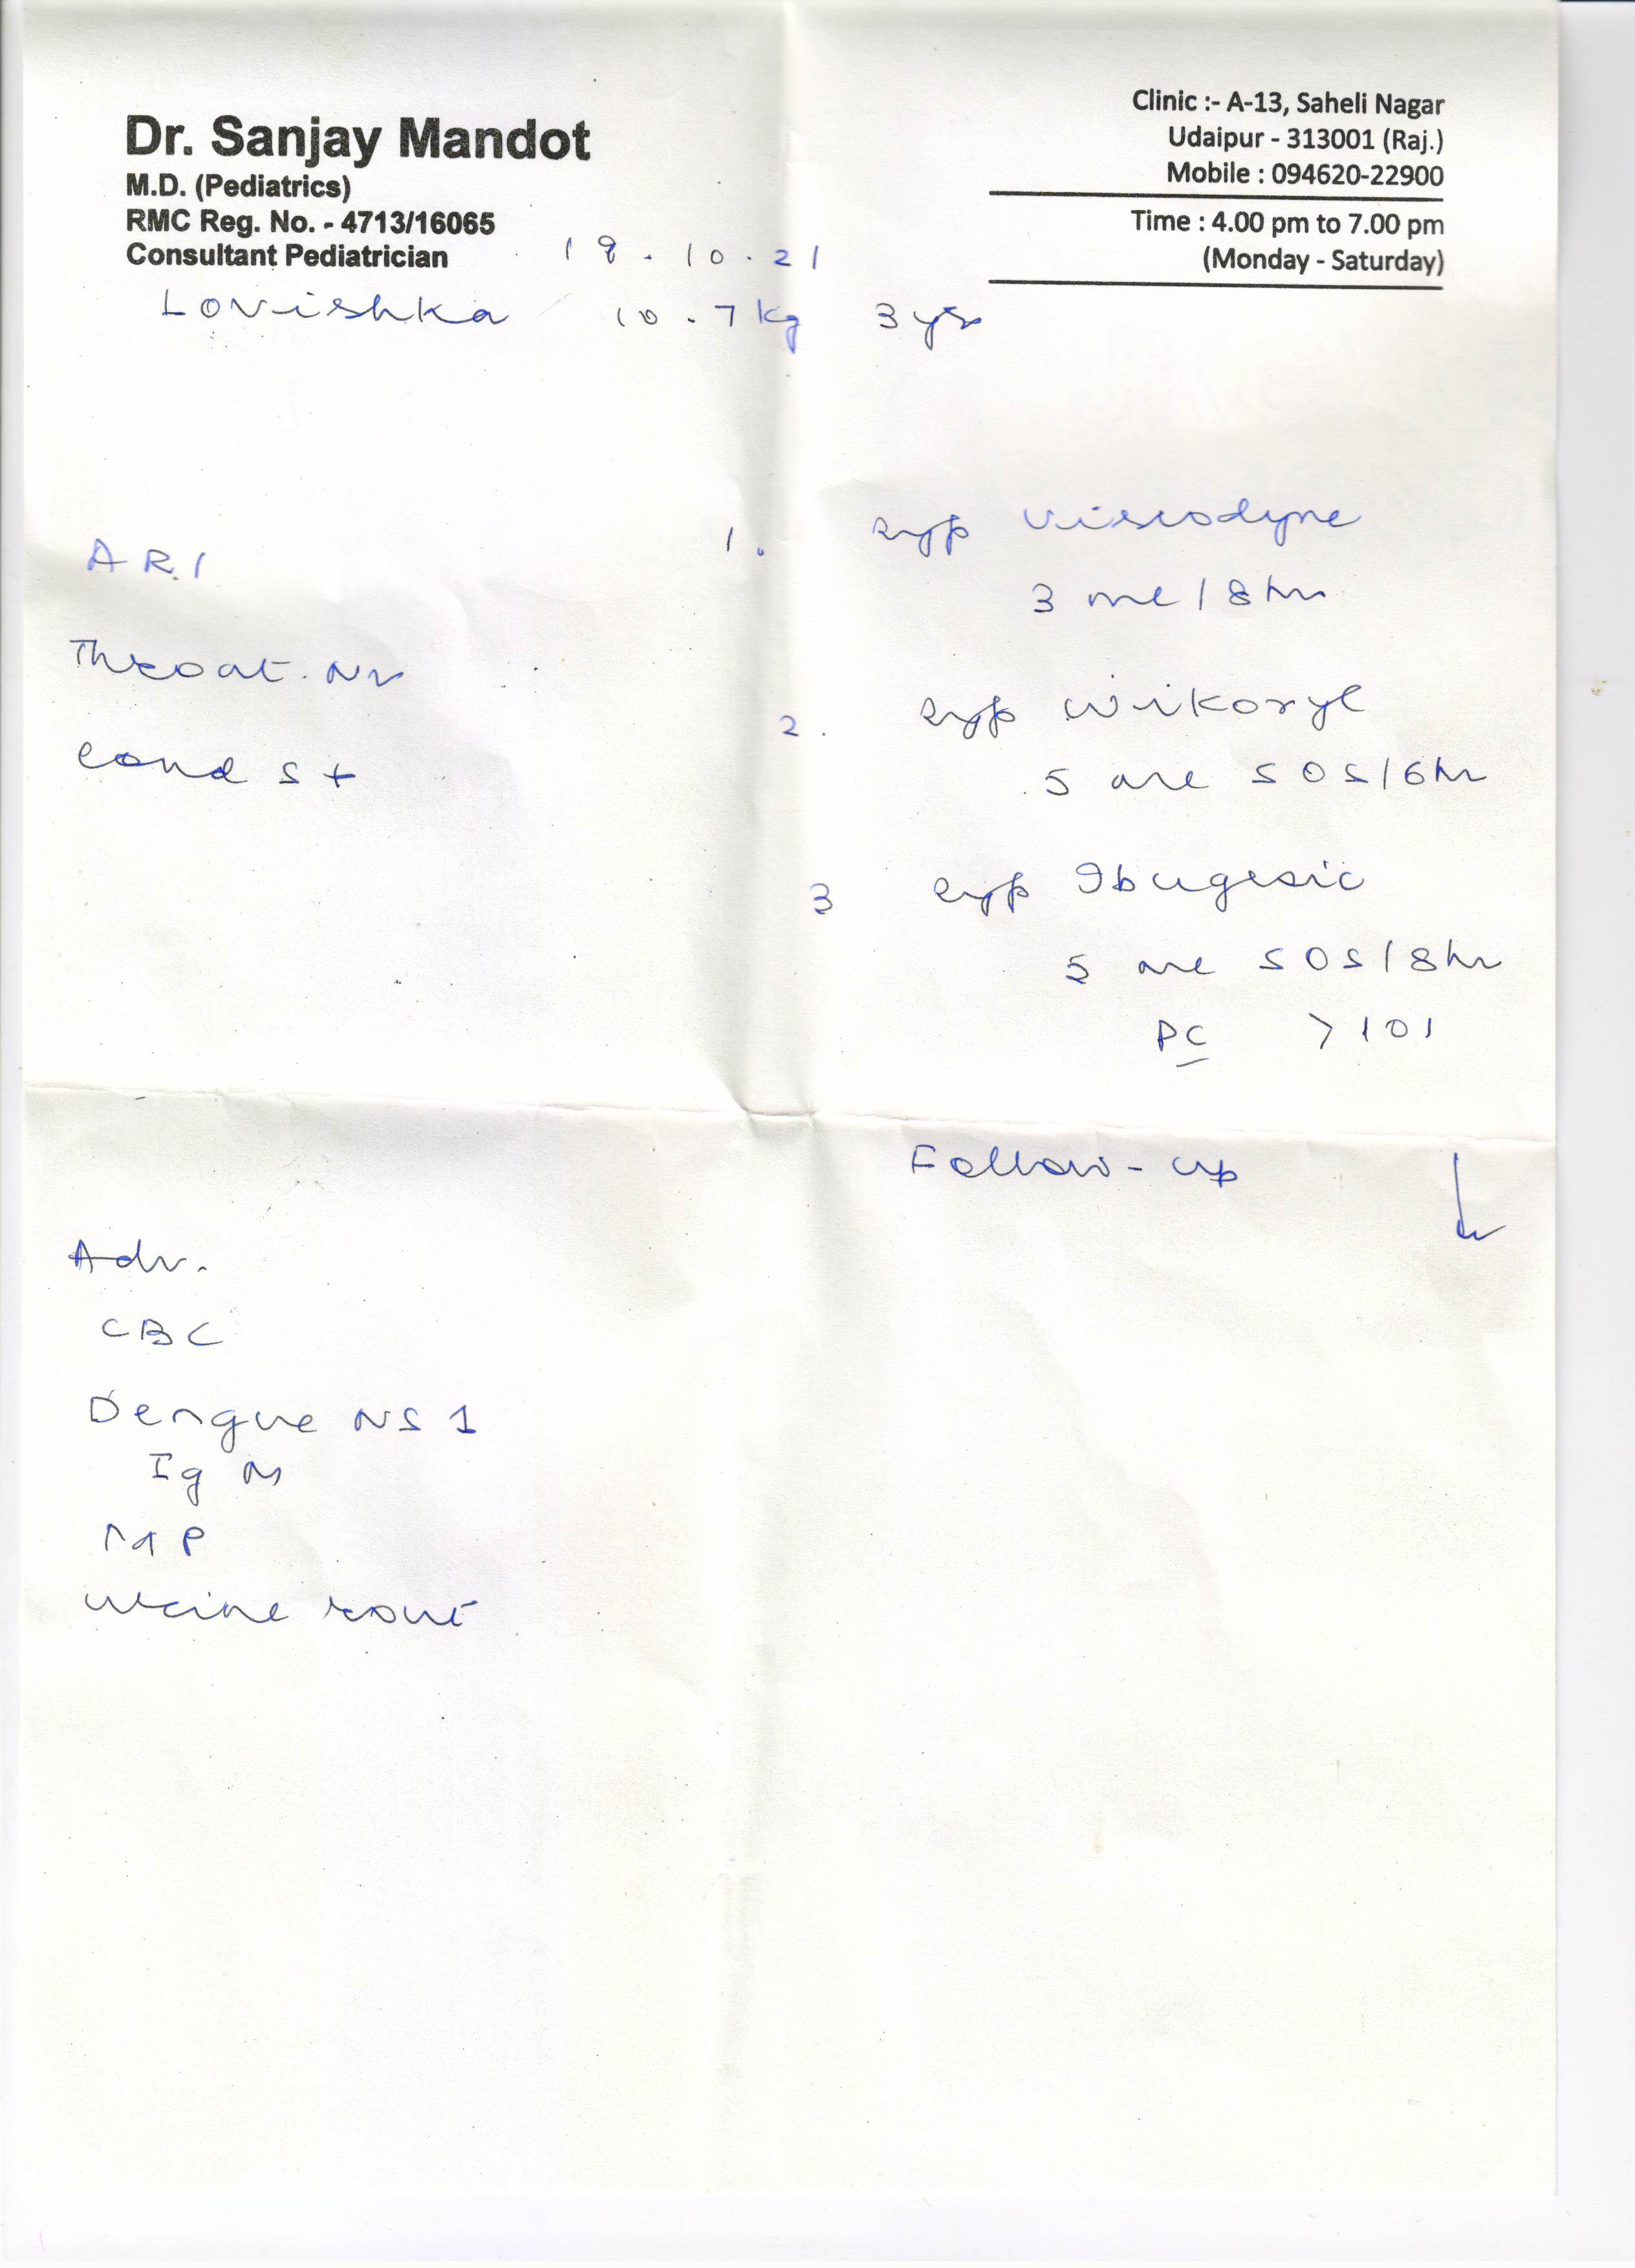 Dr. Sanjay Mandot
M.D. (Pediatrics)
RMC Reg. No. - 4713/16065
Consultant Pediatrician
Clinic :- A-13, Saheli Nagar
Udaipur - 313001 (Raj.)
Mobile : 094620-22900
Time : 4.00 pm to 7.00 pm
(Monday - Saturday)
.10.21
Lovishka 10.7kg 3 yrs
ARI
Throat.
Cond S +
1. syp viscodyne
3 ml / 8 hr
2. syp wikoryl
5 ml SOS / 6 hr
3 syp Ibugesic
5 ml SOS / 8 hr
PC > 101
Follow-up
Adv.
CBC
Dengue NS 1
Ig M
MP
urine rout